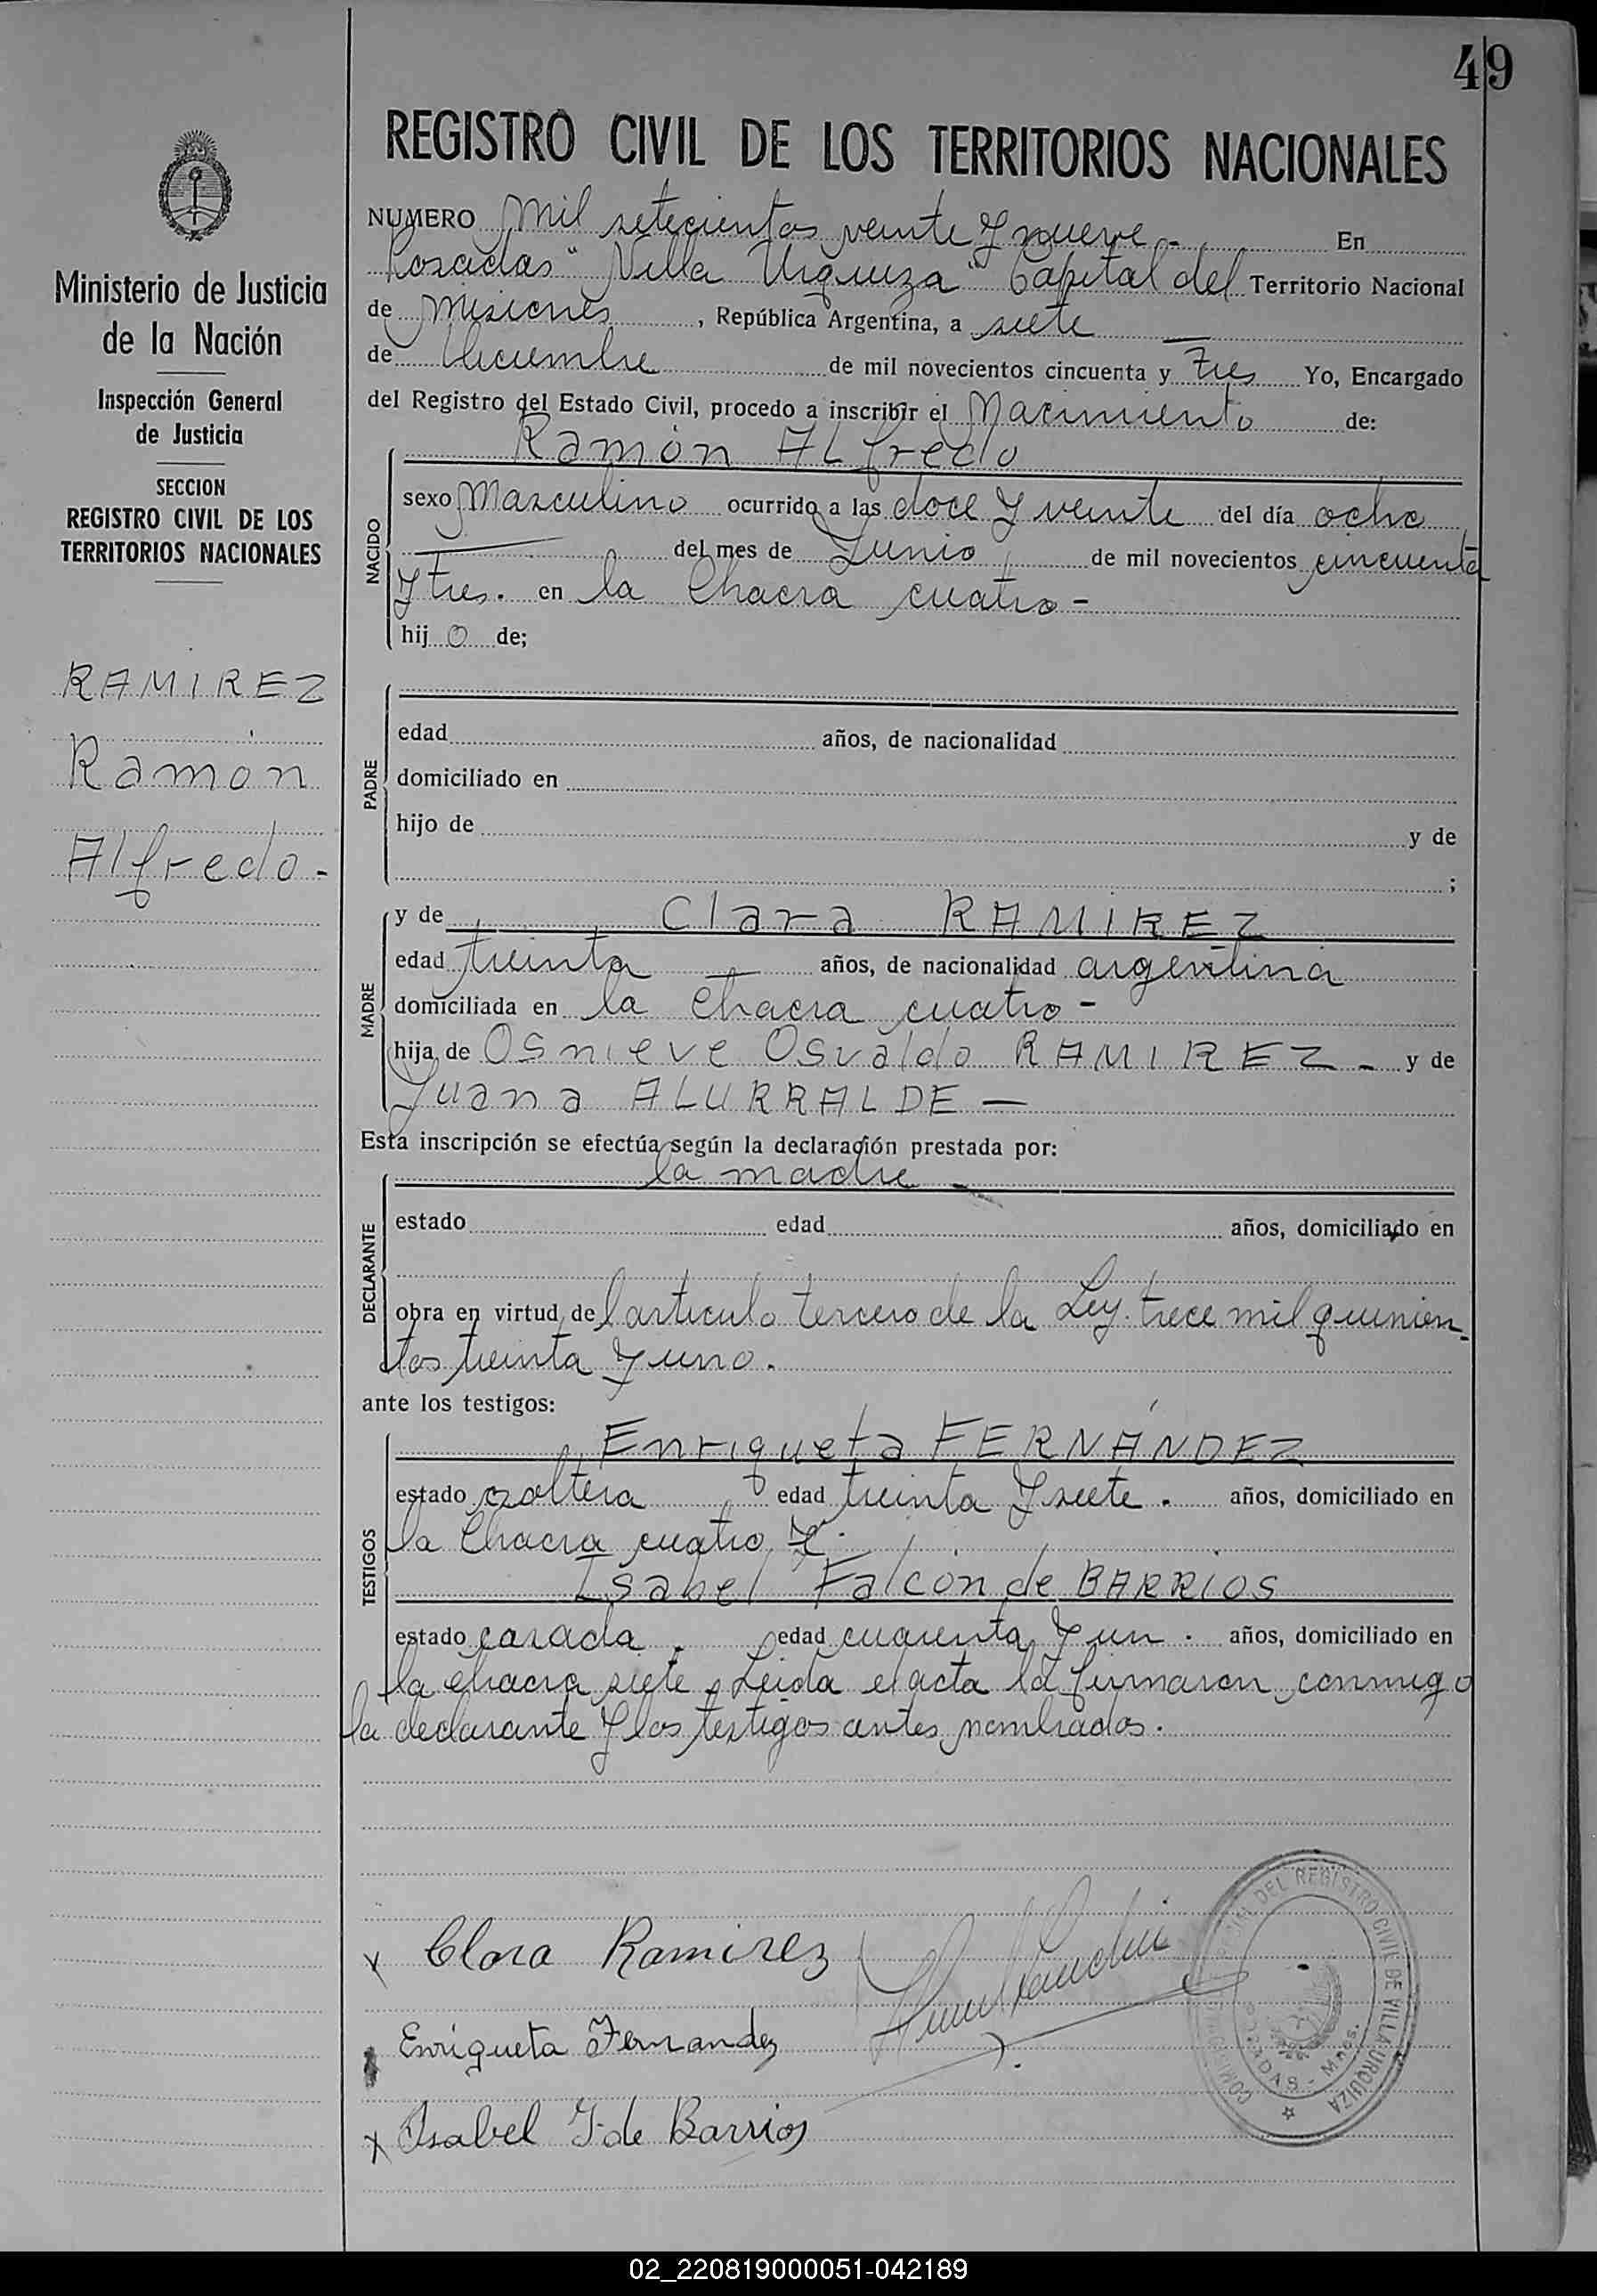 49
REGISTRO CIVIL DE LOS TERRITORIOS NACIONALES
Ministerio de Justicia
de la Nación
Inspección General
de Justicia
SECCION
REGISTRO CIVIL DE LOS
TERRITORIOS NACIONALES
RAMIREZ
Ramón
Alfredo -
NUMERO Mil setecientos veinte y nueve - En
Posadas "Villa Urquiza" Capital del Territorio Nacional
de Misiones, República Argentina, a siete
de Diciembre de mil novecientos cincuenta y tres Yo, Encargado
del Registro del Estado Civil, procedo a inscribir el Nacimiento de:
Ramón Alfredo
NACIDO
sexo Masculino ocurrido a las doce y veinte del día ocho
del mes de Junio de mil novecientos cincuenta
y tres. en la Chacra cuatro -
hijo de;
PADRE
edad años, de nacionalidad
domiciliado en
hijo de y de
;
MADRE
y de Clara RAMIREZ
edad treinta — años, de nacionalidad argentina
domiciliada en la Chacra cuatro -
hija de Osnieve Osvaldo RAMIREZ - y de
Juana ALURRALDE —
Esta inscripción se efectúa según la declaración prestada por:
la madre -
DECLARANTE
estado edad años, domiciliado en
obra en virtud del articulo tercero de la Ley trece mil quinien-
tos treinta y uno.
ante los testigos:
TESTIGOS
Enriqueta FERNÁNDEZ
estado soltera edad treinta y siete. años, domiciliado en
la Chacra cuatro y.
Isabel Falcón de BARRIOS
estado casada. edad cuarenta y un. años, domiciliado en
la chacra siete. Leida el acta la firmaron conmigo
la declarante y los testigos antes nombrados.
x Clara Ramirez
Enriqueta Fernandez
x Isabel F. de Barrios
DEL REGISTRO CIVIL DE VILLA URQUIZA
POSADAS - Mnes.
02_220819000051-042189